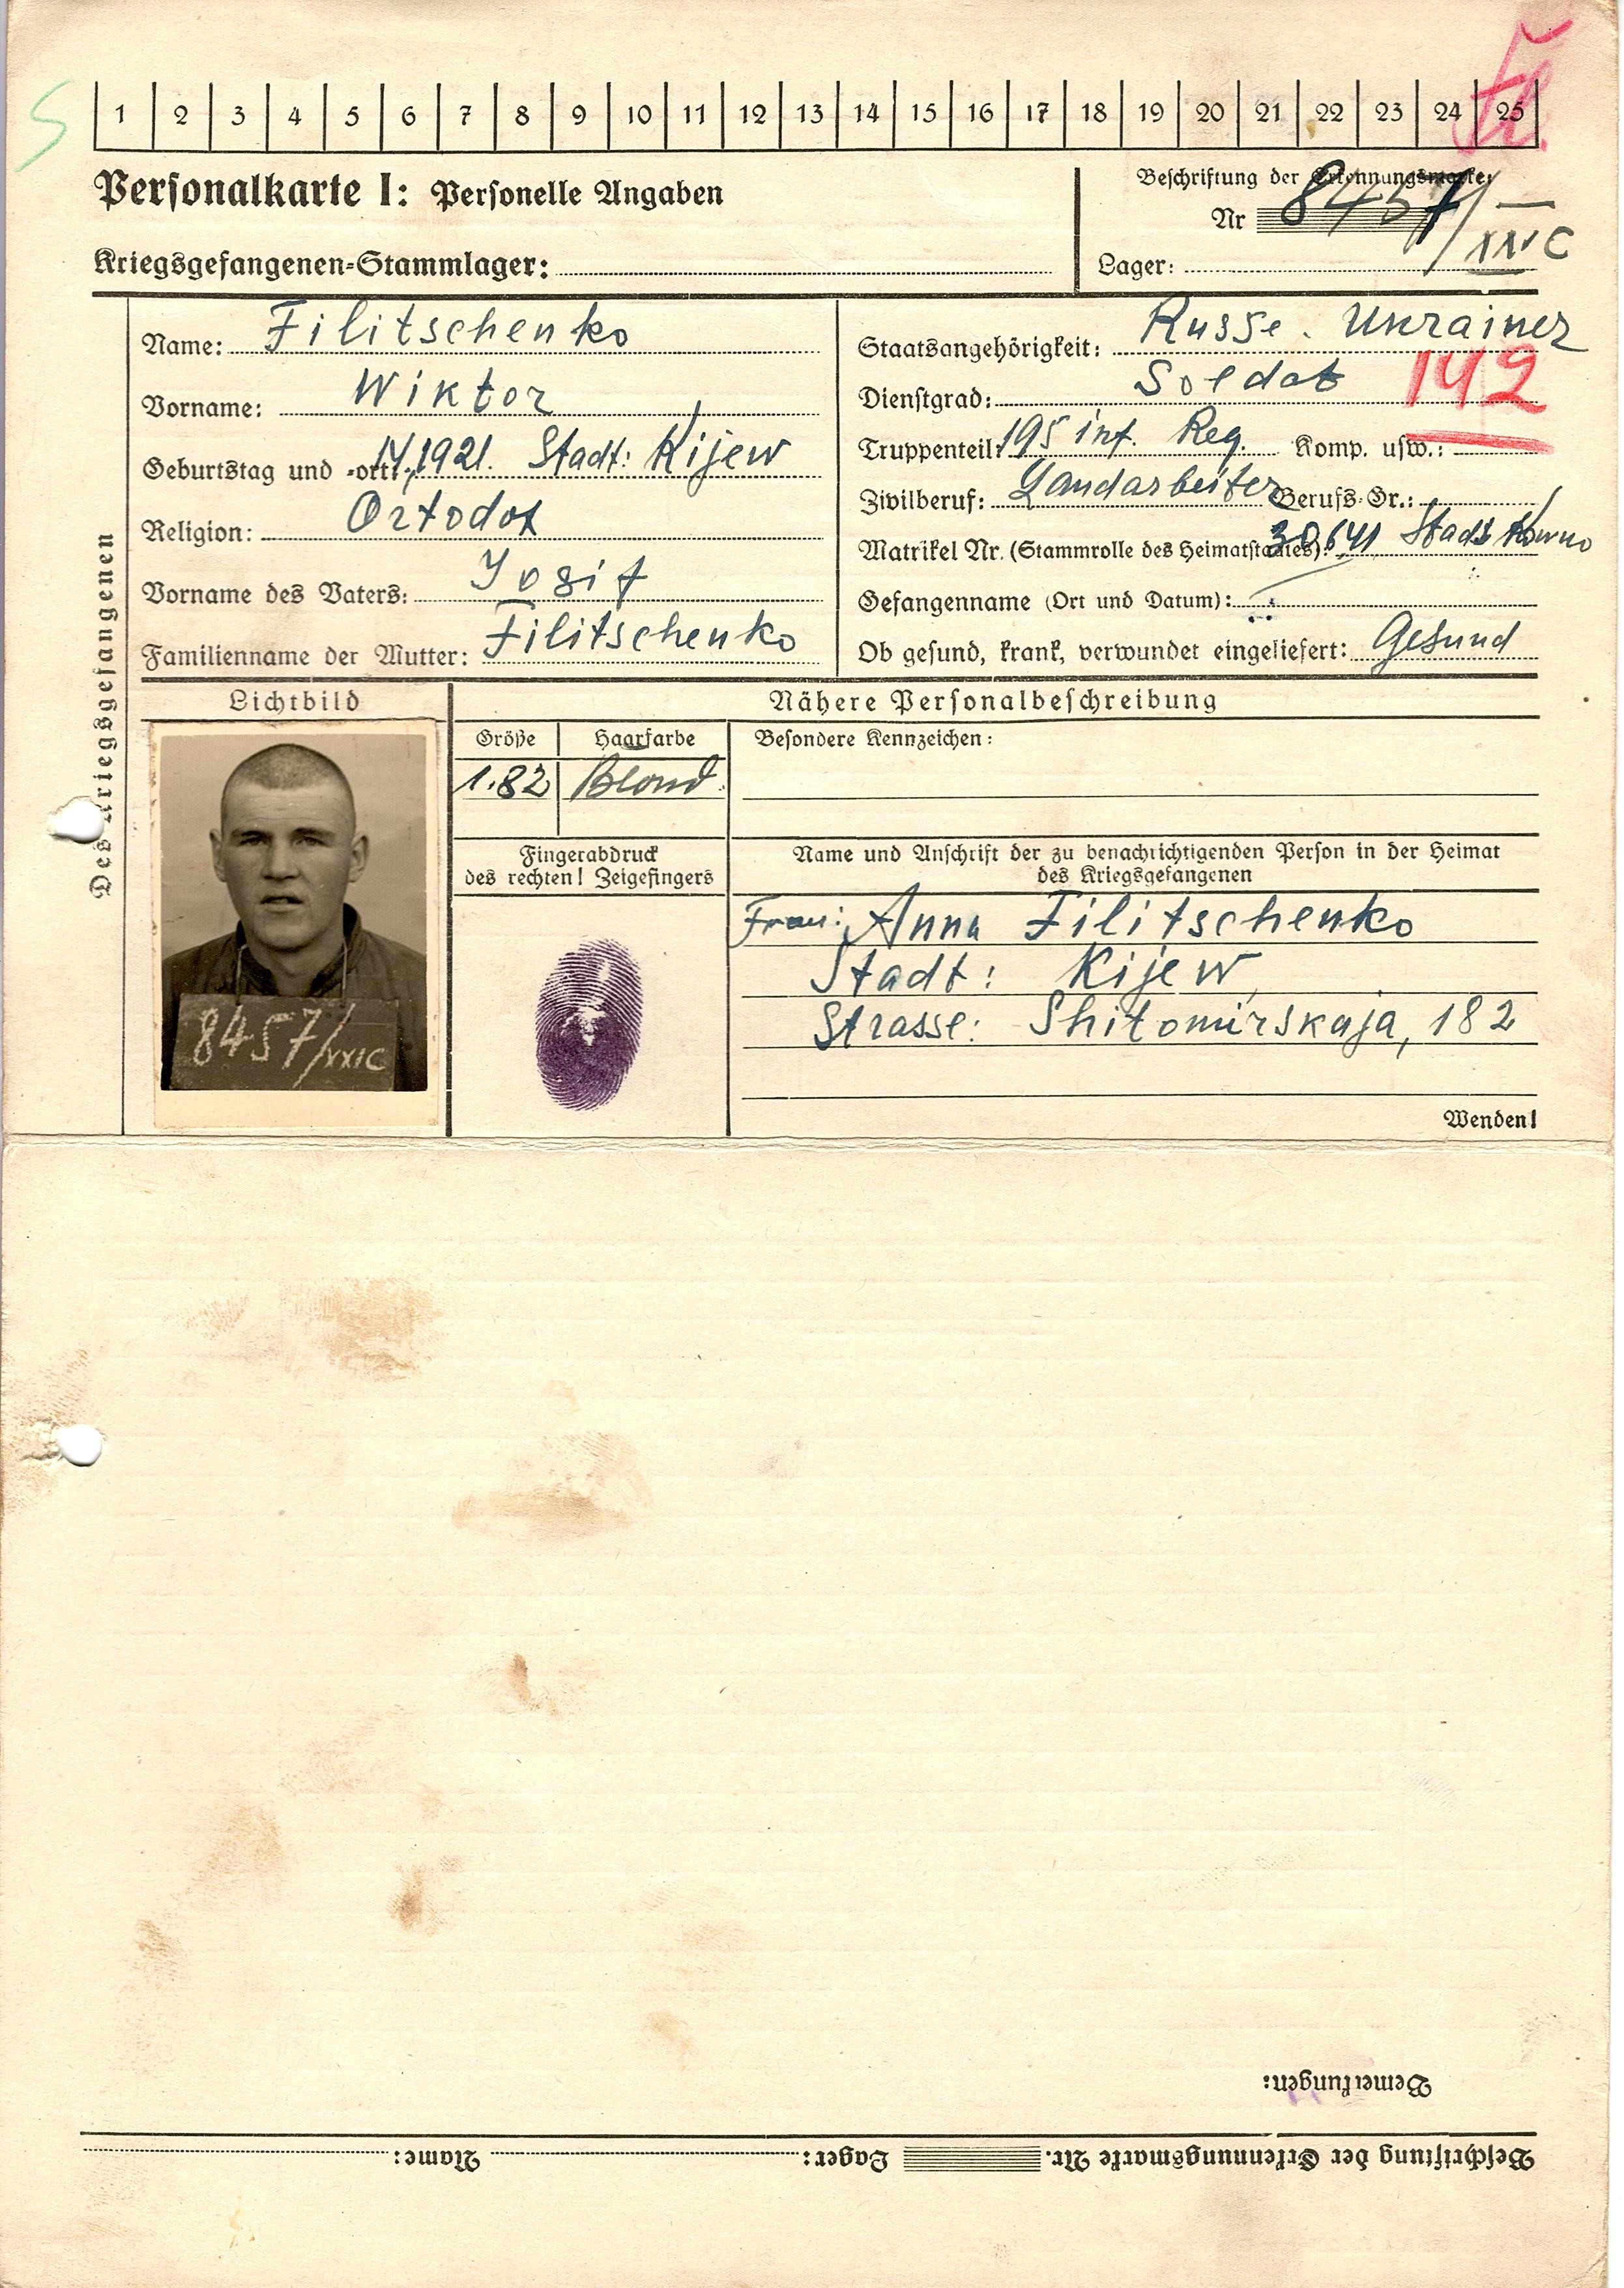 1 2 3 4 5 6 7 8 9 10 11 12 13 14 15 16 17 18 19 20 21 22 23 24 25
Personalkarte I: Personelle Angaben
Kriegsgefangenen-Stammlager:
Beschriftung der Erkennungsmarke:
Nr 8457/
Lager: C
Des Kriegsgefangenen
Name: Filitschenko
Vorname: Wiktor
Geburtstag und -ort: 1921. Stadt: Kijew
Religion: Ortodox
Vorname des Vaters: Iosif
Familienname der Mutter: Filitschenko
Staatsangehörigkeit: Russe. Ukrainer
Dienstgrad: Soldat
142
Truppenteil: 195 inf. Reg. Komp. usw.:
Zivilberuf: Landarbeiter Berufs-Gr.:
Matrikel Nr. (Stammrolle des Heimatstaates): Stadt Kowno
Gefangenname (Ort und Datum):
Ob gesund, krank, verwundet eingeliefert: Gesund
Lichtbild
8457/XXIC
Nähere Personalbeschreibung
Größe Haarfarbe Besondere Kennzeichen:
1.82 Blond.
Fingerabdruck
des rechten! Zeigefingers
Name und Anschrift der zu benachrichtigenden Person in der Heimat
des Kriegsgefangenen
Frau: Anna Filitschenko
Stadt: Kijew
Strasse: Shitomirskaja, 182
Wenden!
Bemerkungen:
Beschriftung der Erkennungsmarke Nr. Lager: Name: